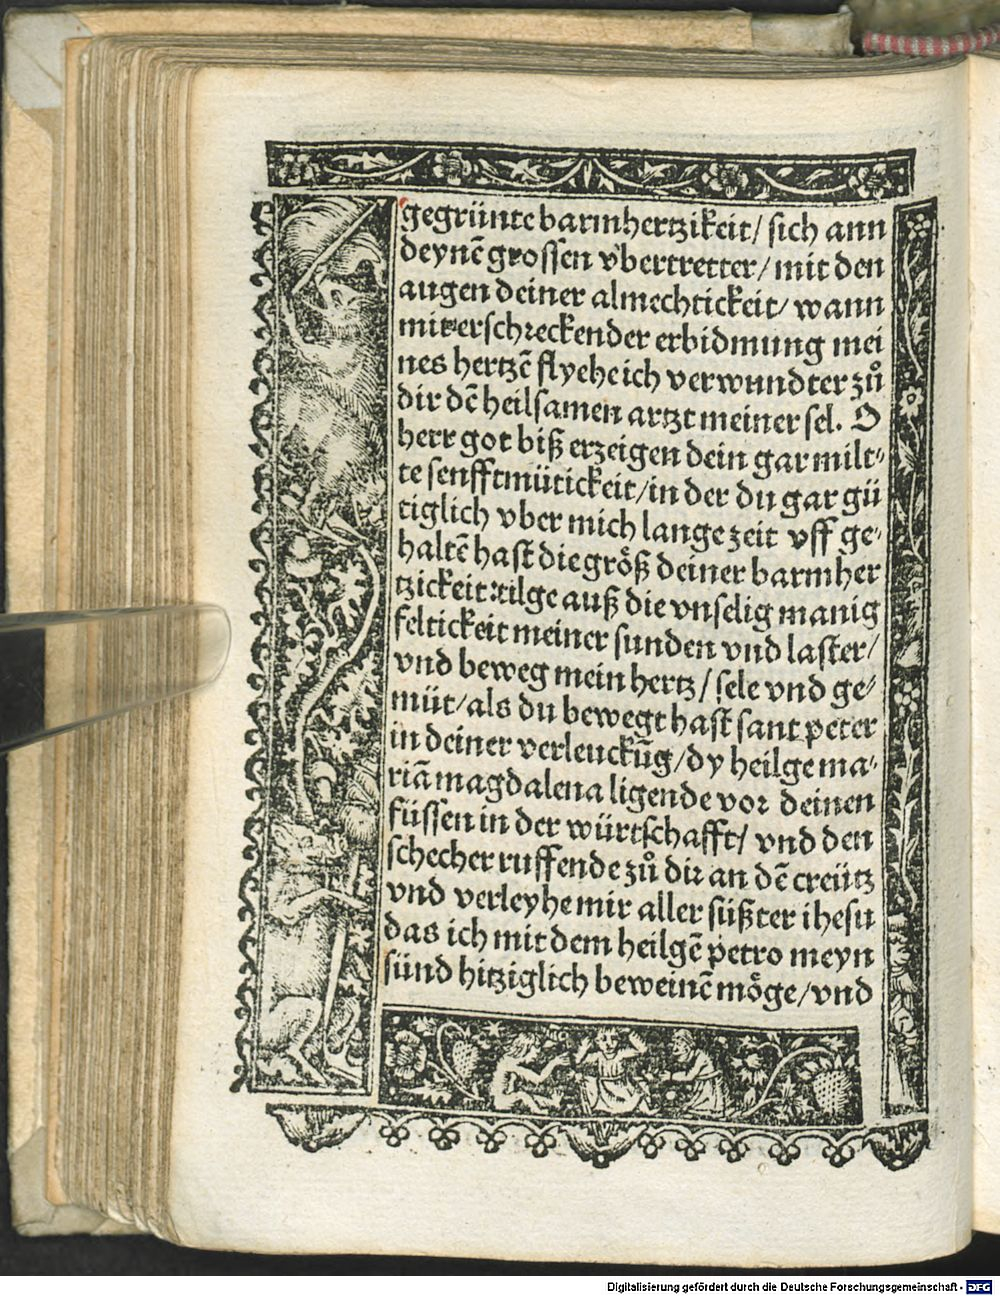 gegrünte barmhertzikeit/ sich ann
deynē grossen vͤbertretter/ mit den
augen deiner almechtickeit/ wann
mit erschreckender erbidmung mei
nes hertzē flyehe ich verwundter zů
dir dē heilsamen artzt meiner sel. O
herr got biß erzeigen dein gar milt⸗
te senfftmütickeit/ in der du gar gü
tiglich vber mich lange zeit vff ge⸗
haltē hast die größ deiner barmher
tzickeit: tilge auß die vnselig manig
feltickeit meiner sunden vnd laster/
vnd beweg mein hertz/ sele vnd ge⸗
müt/ als du bewegt hast sant peter
in deiner verleuckūg/ dy heilge ma⸗
riā magdalena ligende vor deinen
füssen in der würtschafft/ vnd den
schecher ruffende zů dir an dē creütz
vnd verleyhe mir aller süßter ihesu
das ich mit dem heilgē petro meyn
sünd hitziglich beweinē möge/ vnd
Digitalisierung gefördert durch die Deutsche Forschungsgemeinschaft - DFG